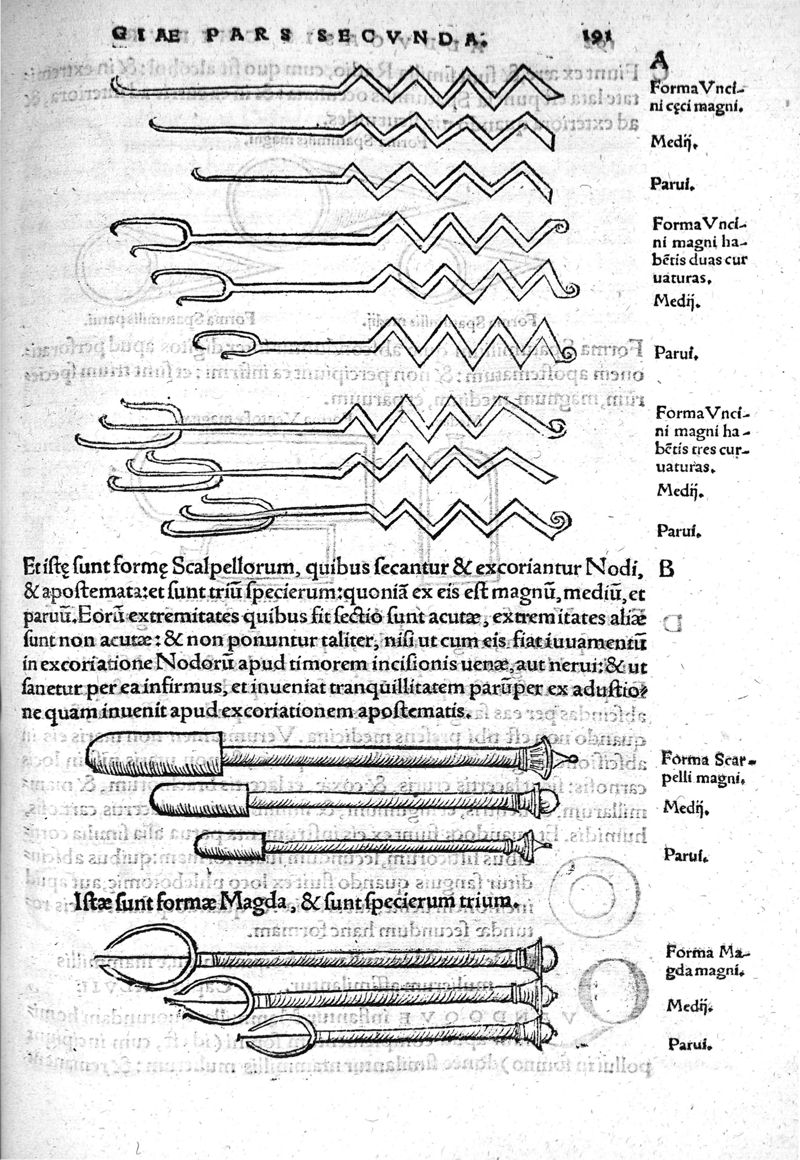 GIAE PARS SECVNDA. 191
A
Forma Vnci-
ni cęci magni.
Medij.
Parui.
Forma Vnci-
ni magni ha-
bẽtis duas cur
uaturas.
Medij.
Parui.
Forma Vnci-
ni magni ha-
bẽtis tres cur-
uaturas.
Medij.
Parui.
B
Et istę sunt formę Scalpellorum, quibus secantur & excoriantur Nodi,
& apostemata: et sunt triũ specierum: quoniã ex eis est magnũ, mediũ, et
paruũ. Eorũ extremitates quibus fit sectio sunt acutæ, extremitates aliæ
sunt non acutæ: & non ponuntur taliter, nisi ut cum eis fiat iuuamentũ
in excoriatione Nodorũ apud timorem incisionis uenæ, aut nerui: & ut
sanetur per ea infirmus, et inueniat tranquillitatem parũper ex adustio-
ne quam inuenit apud excoriationem apostematis.
Forma Scar-
pelli magni.
Medij.
Parui.
Istæ sunt formæ Magda, & sunt specierum trium.
Forma Ma-
gda magni.
Medij.
Parui.